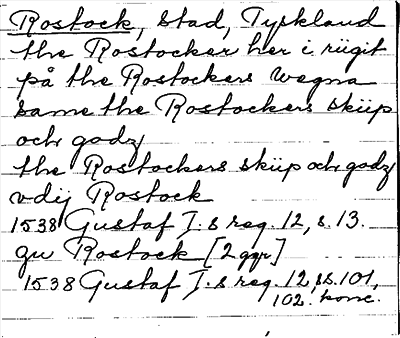 Rostock, stad, Tyskland
the Rostocker her i rügit
på the Rostockers wegna
same the Rostockers skiip
och godz
the Rostockers skiip och godz
vdij Rostock
1538 Gustaf I.s reg. 12, s. 13.
zu Rostock [2 ggr]
1538 Gustaf I.s reg. 12, ss. 101,
102. konc.